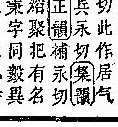 切此作居气
兵永切集韻
正韻補永切
稻聚把有名
秉字同數異